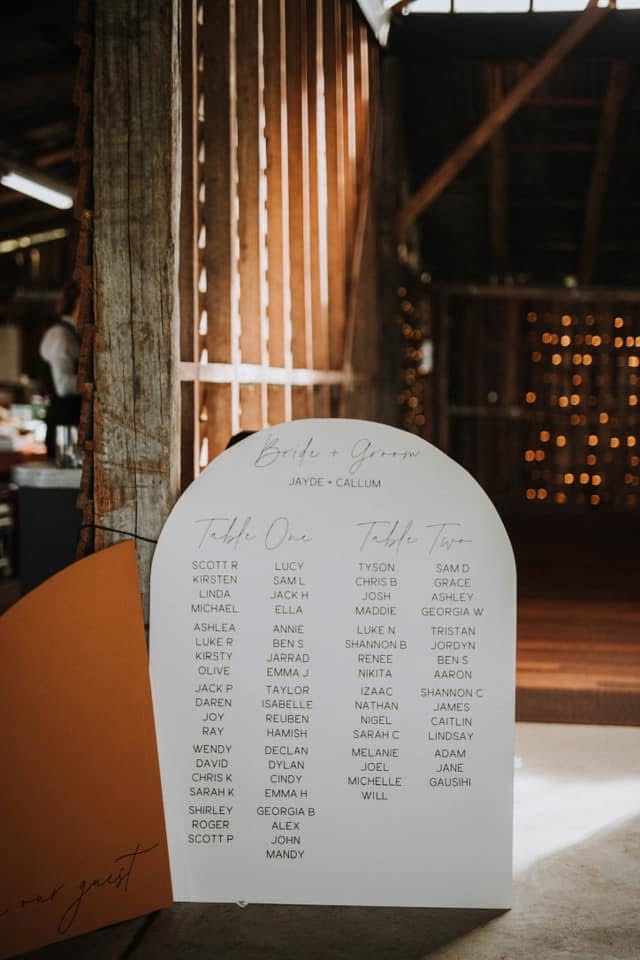 Bride + Groom
JAYDE + CALLUM
Table One
SCOTT R
KIRSTEN
LINDA
MICHAEL
ASHLEA
LUKE R
KIRSTY
OLIVE
JACK P
DAREN
JOY
RAY
WENDY
DAVID
CHRIS K
SARAH K
SHIRLEY
ROGER
SCOTT P
LUCY
SAM L
JACK H
ELLA
ANNIE
BEN S
JARRAD
EMMA J
TAYLOR
ISABELLE
REUBEN
HAMISH
DECLAN
DYLAN
CINDY
EMMA H
GEORGIA B
ALEX
JOHN
MANDY
Table Two
TYSON
CHRIS B
JOSH
MADDIE
LUKE N
SHANNON B
RENEE
NIKITA
IZAAC
NATHAN
NIGEL
SARAH C
MELANIE
JOEL
MICHELLE
WILL
SAM D
GRACE
ASHLEY
GEORGIA W
TRISTAN
JORDYN
BEN S
AARON
SHANNON C
JAMES
CAITLIN
LINDSAY
ADAM
JANE
GAUSIHI
our guest